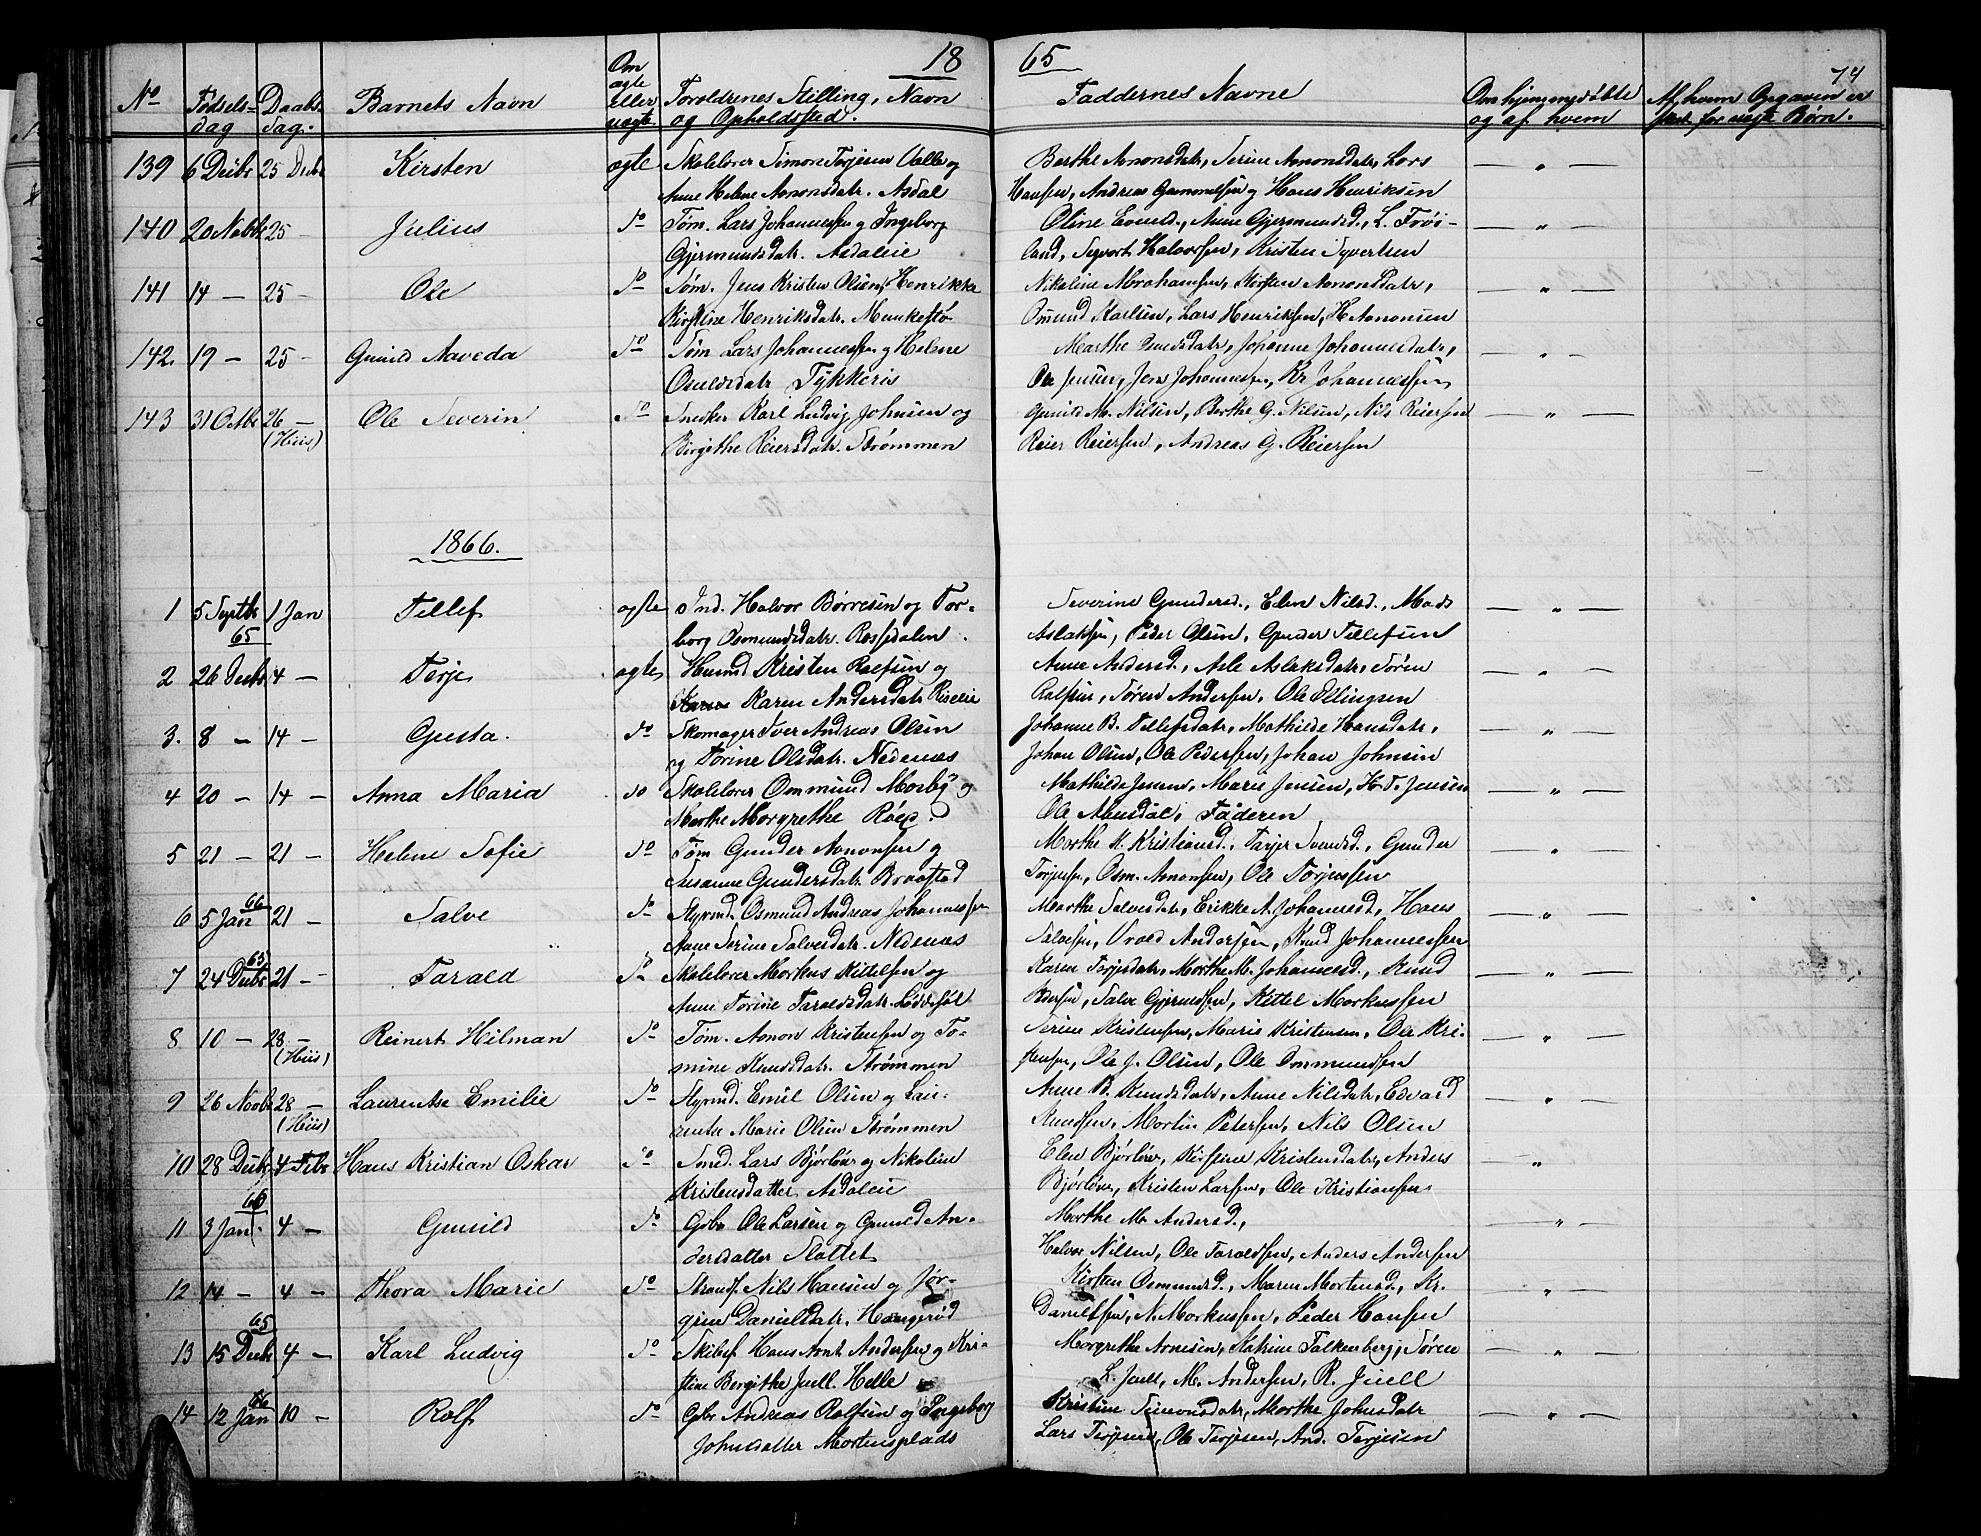 18 65
74
No Fødsels- Daabs Barnets Navn Om Forældrenes Stilling, Navn Faddernes Navne Om hjemmedøbte Af hvem Opgaven er
dag Dag. ægte eller uægte. og Opholdssted. og af hvem for uægte Børn.
139 6 Decbr 25 Decbr Kirsten ægte Skolelærer Simon Terjesen Valle og Berthe Amonsdatr, Serine Amonsdatr, Lars — " —
Anne Helene Amonsdatr. Asdal Hansen, Andreas Gummesen og Hans Henriksen
140 20 Novbr 25 Julius do Tøm. Lars Johannessen og Ingeborg Oline Evensd., Anne Gjermundsd., L. Frøi- — " —
Gjermundsdatr. Asdaleie land, Syvert Halvorsen, Kristen Syvertsen
141 14 — 25 — Ole do Tøm. Jens Kristen Olsen, Henrikke Nikoline Abrahamsen, Kirsten Amonsdatr, — " —
Kirstine Henriksdatr. Munkestø Omund Karlsen, Lars Henriksen, H Amonsen
142. 19 — 25 — Gunild Aaveda do Tøm Lars Johannessen og Helene Marthe datr, Johanne Johannesdatr, — " —
Osuldsdatr Tykkeris Ole Jensen, Jens Johannessen, Kr Johannessen
143 31 Octbr 26 — Ole Severin do Snedker Karl Ludvig Johnsen og Gunild M. Nilsen, Berthe G. Nilsen, Nils Reiersen — " —
(Huus) Birgithe Reiersdatr. Strømmen Reier Reiersen, Andreas G. Reiersen
1866.
1 5 Septbr 1 Jan Tellef ægte Ind. Halvor Børresen og Tor- Severine Gundersd., Elen Nilsd., Mads — " —
65 borg Osmundsdatr. Rossedalen. Aslaksen, Peder Olsen, Gunder Tellefsen
2 26 Decbr 4 — Terje ægte Huusmd Kristen Rolfsen og Anne Andersd., Asle Aslaksdatr, Søren — " —
Karen Andersdatr Riseeie Rolfsen, Søren Andersen, Ole Ellingsen
3. 8 — 14 — Gusta. do Skomager Iver Andreas Olsen Johanne B. Tellefsdatr, Mathilde Hansdatr, — " —
og Torine Olsdatr. Nedenæs Johan Olsen, Ole Pedersen, Johan Johnsen
4 20 — 14 — Anna Maria do Skolelærer Ommund Mosby og Mathilde Jensen, Marie Jensen, H. T. Jensen — " —
Marthe Margrethe Ole Abusdal, Faderen
5 21 — 21 — Helene Sofie do Tøm Gunder Amonsen og Marthe K. Kristiansd., Tarjer Svensd., Gunder "
Susanne Gundersdatr. Braastad Terjesen, Osm. Amonsen, Ole Terjessen
6 5 Jan 66 21 — Salve do Styrmd. Osmund Andreas Johannessen Marthe Salvesdatr, Erikke A. Johannesd., Hans — " —
Anne Serine Salvesdatr. Nedenæs Salvesen, Andersen, Knud Johannessen
7 24 Decbr 65 21 — Tarald do Skolelærer Markus Kittelsen og Karen Terjesdatr, Marthe M. Johannesd., Knud — " —
Anne Torine Taraldsdatr. Løddesøl Pedersen, Salve Gjermundsen, Kittel Markussen
8 10 — 28 — Reinert Hilman do Tøm. Amon Kristensen og To- Serine Kristensen, Marie Kristensen, Ole Kri- — " —
(Huus) mine Knudsdatr. Strømmen stensen, Ole J. Olsen, Ole Ommundsen
9 26 Novbr 28 — Laurentse Emilie do Styrmd. Emil Olsen og Lau- Anne B. Knudsdatr, Anne Nilsdatr, Edvard "
(Huus) rentse Marie Olsen Strømmen Knudsen, Martin Petersen, Nils Olsen
10 28 Decbr 4 Febr Hans Kristian Oskar do Smed. Lars Bjørløw og Nikoline Elen Bjørløw, Kirstine Kristensdatr, Anders — " —
Kristensdatter. Asdaleie Bjørløw, Kristen Larsen, Ole Kristiansen
11 3 Jan. 66 4 — Gunild do Gbr Ole Larsen og Gunild An- Marthe M. Andersd., — " —
dersdatter Slottet Halvor Nilsen, Ole Taraldsen, Anders Andersen
12 14 — 4 — Thora Marie do Strandsf Nils Hansen og Jør- Kirsten Osmundsd., Maren Mortensd., Kr. "
gine Danielsdatr. Hangerød Danielsen, N. Markussen, Peder Hansen
13 15 Decbr 65 4 — Karl Ludvig do Skibsf. Hans Arnt Andersen og Kri- Margrethe Arnesen, Katrine Falkenberg, Søren — " —
stine Bergithe Juell. Helle L. Juell, M. Andersen, R. Juell
14 12 Jan 66 10 — Rolf do Gbr Andreas Rolfsen og Ingeborg Kristine Simonsdatr, Marthe Johnsdatr — " —
Johnsdatter Mortensplads Lars Terjesen, Ole Terjesen, And. Terjesen